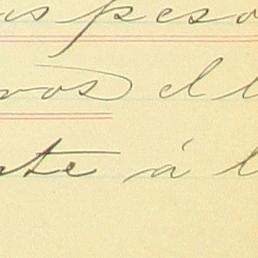 os peso
vos el l
nte á l